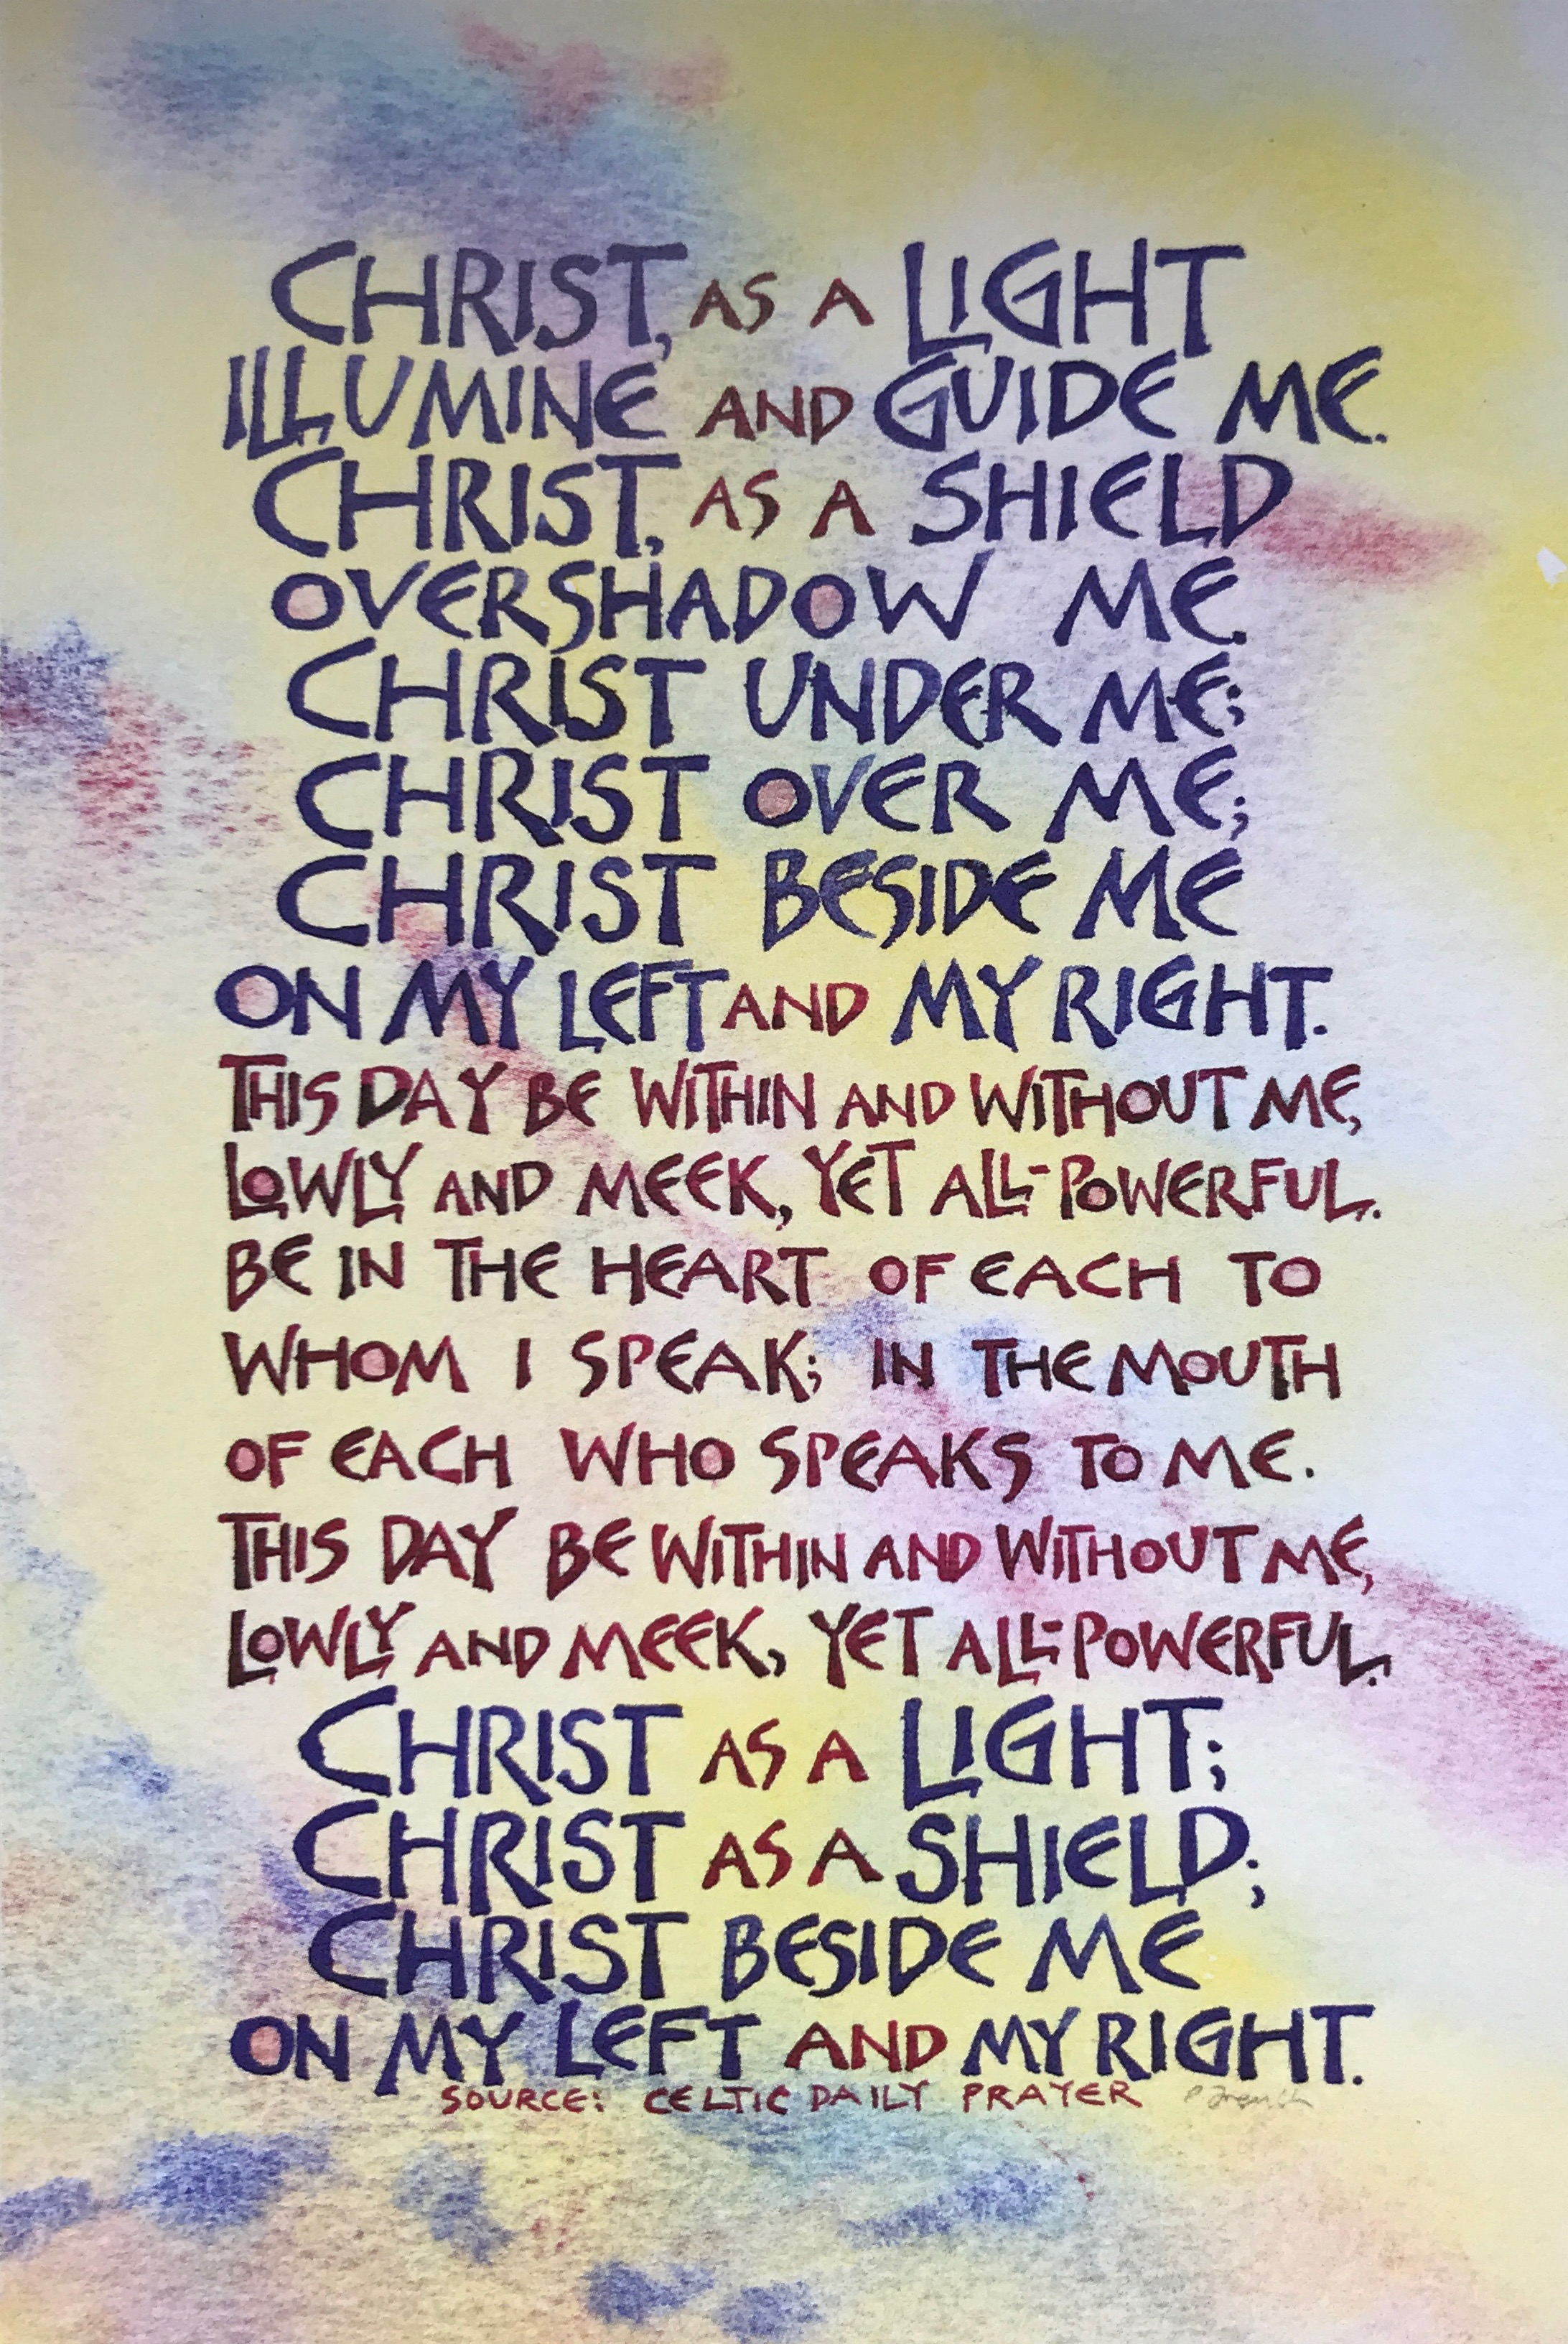 CHRIST, AS A LIGHT
ILLUMINE AND GUIDE ME.
CHRIST, AS A SHIELD
OVERSHADOW ME.
CHRIST UNDER ME;
CHRIST OVER ME;
CHRIST BESIDE ME
ON MY LEFT AND MY RIGHT.
THIS DAY BE WITHIN AND WITHOUT ME,
LOWLY AND MEEK, YET ALL-POWERFUL.
BE IN THE HEART OF EACH TO
WHOM I SPEAK; IN THE MOUTH
OF EACH WHO SPEAKS TO ME.
THIS DAY BE WITHIN AND WITHOUT ME,
LOWLY AND MEEK, YET ALL-POWERFUL.
CHRIST AS A LIGHT;
CHRIST AS A SHIELD;
CHRIST BESIDE ME
ON MY LEFT AND MY RIGHT.
SOURCE: CELTIC DAILY PRAYER P French